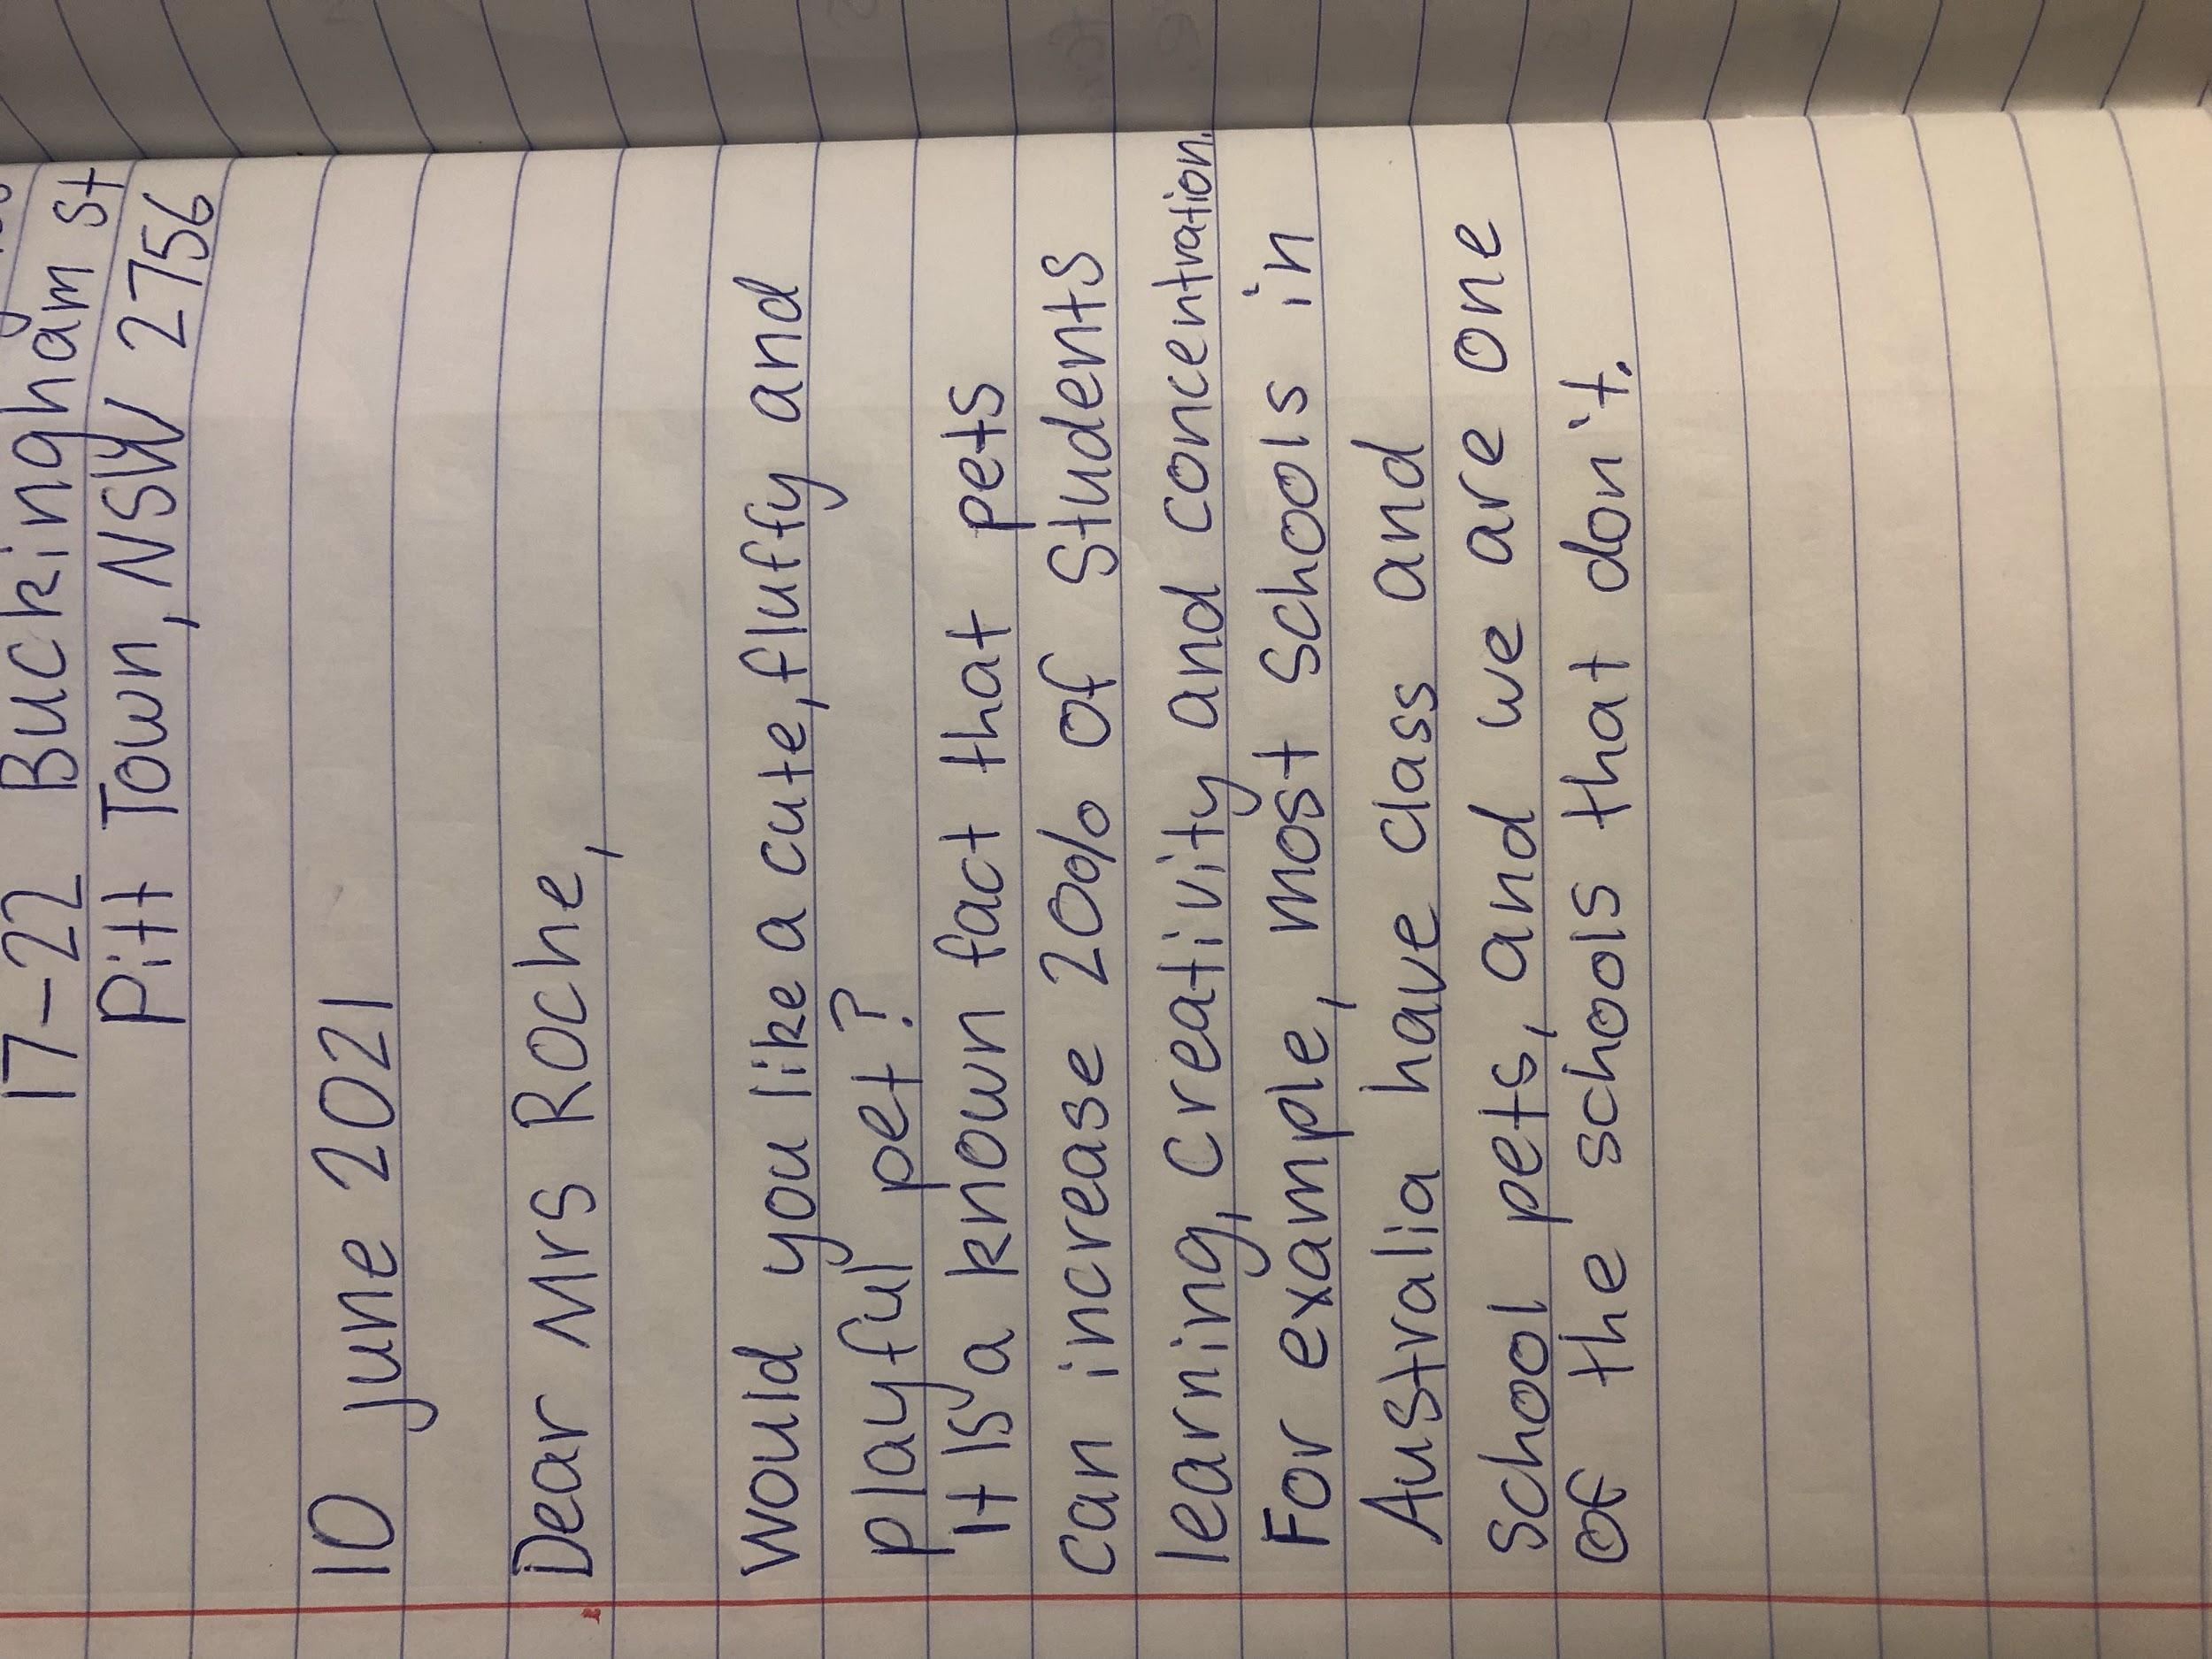 17-22 Buckingham st
Pitt Town, NSW 2756
10 june 2021
Dear Mrs Roche,
Would you like a cute, fluffy and
playful pet?
It is a known fact that pets
can increase 20% of students
learning, creativity and concentration.
For example, most schools in
Australia have class and
school pets, and we are one
of the schools that don't.